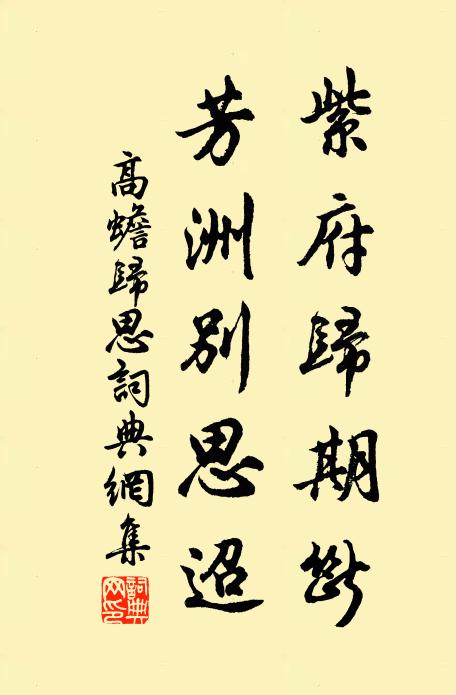 紫府歸期斷
芳洲別思迢
高蟾歸思詞典網集
詞典网印